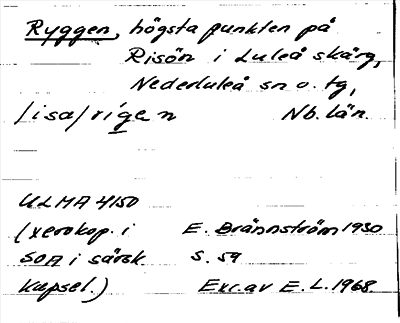 Ryggen, högsta punkten på
Risön i Luleå skärg,
Nederluleå sn o. tg,
/isa/rigen Nb. län.
ULMA 4150
(xerokop. i E. Brännström 1930
SOA i särsk. s. 59
kapsel.) Exc. av E. L. 1968